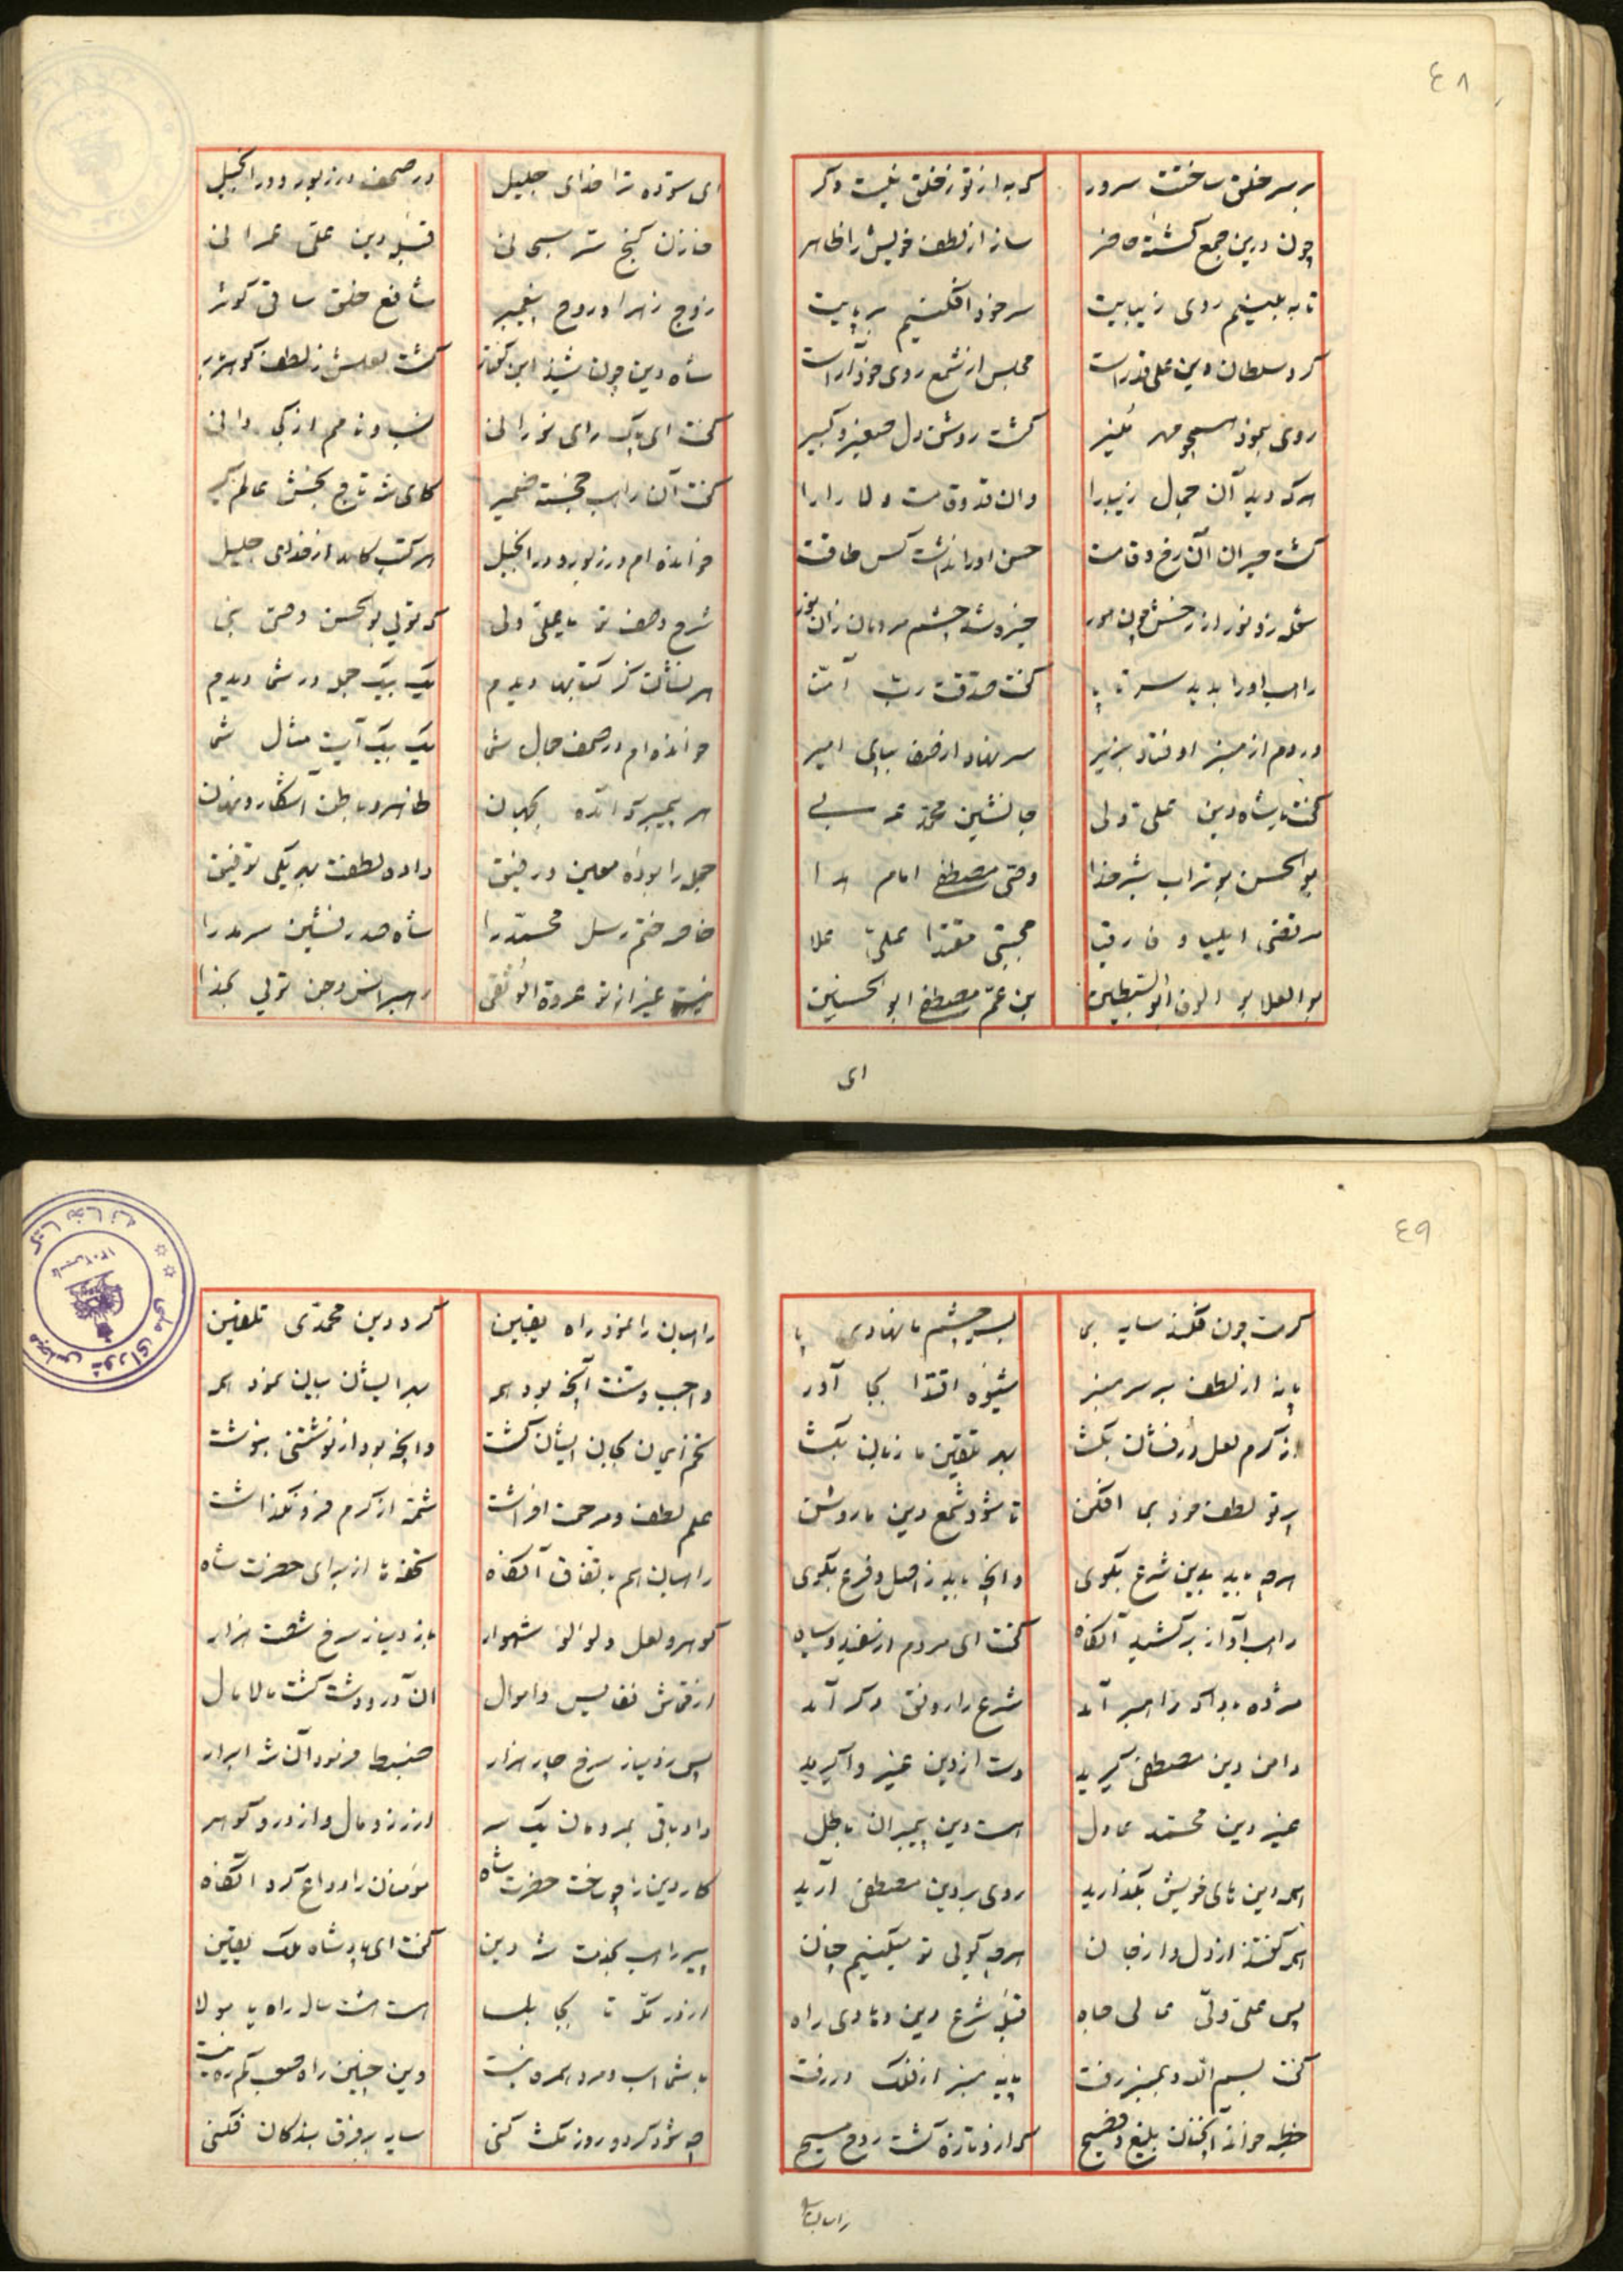 ٤٨
بر سر خلق ساختت سرور که به از تو ز خلق نیست دگر
چون درین جمع گشتهٔ حاضر ساز از لطف خویش را ظاهر
تا به بینیم روی زیبایت سر خود افکنیم بر پایت
کرد سلطان دین علی قد راست مجلس از شمع روی خود آراست
روی بنمود همچو مهر منیر گشت روشن دل صغیر و کبیر
هرکه دید آن جمال زیبا را وان قد و قامت دلارا را
گشت حیران آن رخ و قامت حسن او را نداشت کس طاقت
شعله زد نور از رخش چون هور خیره شد چشم مردمان زان نور
راهب او را بدید سر تا پا گفت صدقت رب آمنا
در دم از منبر اوفتاد بزیر سر نهاد از صفا بپای امیر
گفت با شاه دین علی ولی جانشین محمد عربی
بوالحسن بوتراب شیر خدا وصی مصطفی امام هدا
مرتضی ایلیا و فارقیا مجتبی مقتدا علی علا
بوالعلا بوالوفا ابوالسبطین بن عم مصطفی ابوالحسنین
ای
ای ستوده ترا خدای جلیل در صحف در زبور و در انجیل
خازن گنج سر سبحانی قبلهٔ دین علی عمرانی
زوج زهرا و روح پیغمبر شافع خلق ساقی کوثر
شاه دین چون شنید این گفتار گشت لعلش ز لطف گوهر بار
گفت ای پیک رای نورانی نسب و نام من از کجا دانی
گفت آن راهب خجسته ضمیر کای شه تاج بخش عالم گیر
خوانده ام در زبور و در انجیل هر کتب کامد از خدای جلیل
شرح وصف تو یا علی ولی که تویی بوالحسن وصی نبی
هر نشانت کز کتابها دیدم یک بیک جمله در شما دیدم
خوانده ام در صحف جمال شما یک بیک آیت مثال شما
هر پیمبر که آمده بجهان ظاهر و باطن آشکار و نهان
جمله را بودهٔ معین و رفیق داده لطفت بهر یکی توفیق
خاصه ختم رسل محمد را شاه صدر نشین سرمد را
نیست غیر از تو عروة الوثقی رهبر انس و جن تویی بخدا
٤٩
کرمت چون فکند سایه بما بسر چشم ما نهادی پا
پا نه از لطف بر سر منبر شیوه اقتدا بجا آور
از کرم لعل درفشان بگشا بهر تلقین ما زبان بگشا
پرتو لطف خود بما افکن تا شود شمع دین ما روشن
هرچه باید بدین شرع بگوی وانچه باید ز اصل و فرع بگوی
راهب آواز برکشید آنگاه گفت ای مردم از سفید و سیاه
مژده بادا که راهبر آمد شرع را رونق دگر آمد
دامن دین مصطفی گیرید دست از دین غیر واگیرید
غیر دین محمد عادل هست دین پیمبران باطل
همه دین های خویش بگذارید روی بر دین مصطفی آرید
همه گفتند از دل و از جان هرچه گویی تو میکنیم چنان
پس علی ولی عالی جاه قبلهٔ شرع دین و هادی راه
گفت بسم الله و بمنبر رفت پایه منبر از فلک در رفت
خطبه خواند آنچنان بلیغ و فصیح که ازو تازه گشت روح مسیح
راهبان را
راهبان را نمود راه یقین کرد دین محمدی تلقین
واجب و سنت آنچه بود همه بهر ایشان بیان نمود همه
تخم ایمان بجان ایشان کشت وانچه بود از نوشتنی بنوشت
علم لطف و مرحمت افراشت شمه از کرم فرو نگذاشت
راهبان هم باتفاق آنگاه تحفه ها از برای حضرت شاه
گوهر و لعل و لولوء شهوار باز دینار سرخ شصت هزار
از قماش نفایس و اموال آن در و دشت گشت مالامال
پس ز دینار سرخ چار هزار ضبط فرمود آن شه ابرار
داد باقی بمردمان یک سر از زر و مال و از در و گوهر
کار دین را چو ساخت حضرت شاه مومنان را وداع کرد آنگاه
پیر راهب بخدمت شه دین گفت ای پادشاه ملک یقین
از در مکه تا بجا بلسا هست هشت ساله راه یا مولا
با شما اسب و مرد همره نیست وین چنین راه صعب کم ره نیست
چه شود گر دو روز مکث کنی سایه بر فرق بندگان فکنی